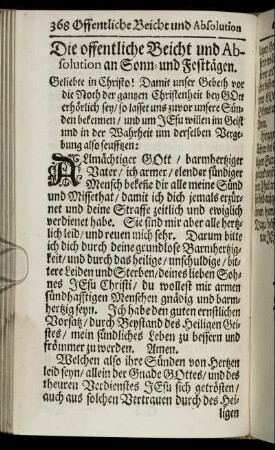 368 Offentliche Beicht und Absolution
Die offentliche Beicht und Ab-
solution an Sonn- und Festtägen.
Geliebte in Christo! Damit unser Gebeth vor
die Noth der gantzen Christenheit bey GOtt
erhörlich sey/ so lasset uns zuvor unsere Sün-
den bekennen/ und um JEsu willen im Geist
und in der Wahrheit um derselben Verge-
bung also seufftzen:
Allmächtiger GOtt/ barmhertziger
Vater/ ich armer/ elender sündiger
Mensch bekeñe dir alle meine Sünd
und Missethat/ damit ich dich jemals erzür-
net und deine Straffe zeitlich und ewiglich
verdienet habe. Sie sind mir aber alle hertz-
lich leid/ und reuen mich sehr. Darum bitte
ich dich durch deine grundlose Barmhertzig-
keit/ und durch das heilige/ unschuldige/ bit-
tere Leiden und Sterben/ deines lieben Soh-
nes JEsu Christi/ du wollest mir armen
sündhafftigen Menschen gnädig und barm-
hertzig seyn. Ich habe den guten ernstlichen
Vorsatz/ durch Beystand des Heiligen Gei-
stes/ mein sündliches Leben zu bessern und
frömmer zu werden. Amen.
Welchen also ihre Sünden von Hertzen
leid seyn/ allein der Gnade GOttes/ und des
theuren Verdienstes JEsu sich getrösten/
auch aus solchen Vertrauen durch des Hei-
ligen